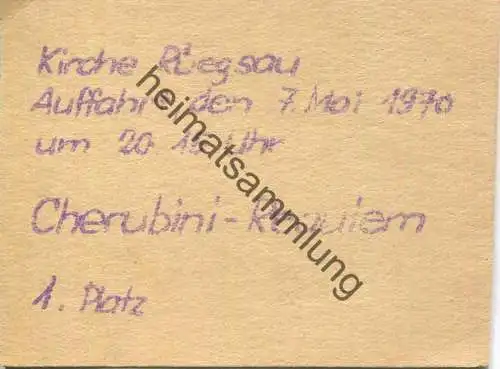 Kirche Rüegsau
Auffahrt den 7. Mai 1970
um 20 15 Uhr
Cherubini - Requiem
1. Platz
heimatsammlung.de